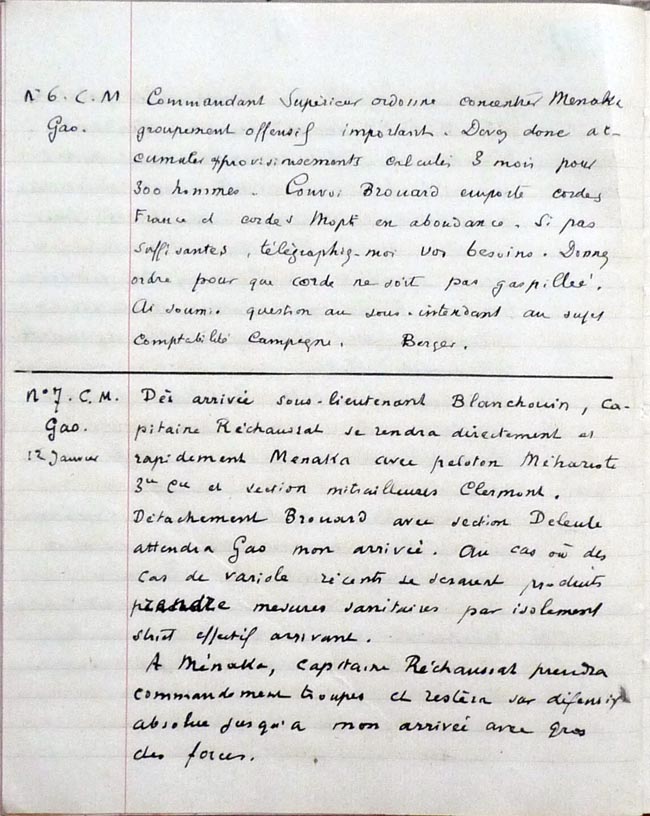 N° 6. C. M Commandant Supérieur ordonne concentrer Menaka
Gao. groupement offensif important. Devez donc ac-
cumuler approvisionnements calculés 3 mois pour
300 hommes. Convoi Brouard emporte cordes
France et cordes Mopti en abondance. Si pas
suffisantes, télégraphiez-moi vos besoins. Donnez
ordre pour que corde ne soit pas gaspillée.
Ai soumis question au sous-intendant au sujet
comptabilité Campagne. Berger.
N° 7. C. M. Dès arrivée sous-lieutenant Blanchouin, Ca-
Gao. pitaine Réchaussat se rendra directement et
12 Janvier rapidement Menaka avec peloton Méhariste
3me Cie et section mitrailleuses Clermont.
Détachement Brouard avec section Deleule
attendra Gao mon arrivée. Au cas où des
cas de variole récents se seraient produits
prendre mesures sanitaires par isolement
strict effectif arrivant.
A Ménaka, Capitaine Réchaussat prendra
commandement troupes et restera sur défensive
absolue jusqu'a mon arrivée avec gros
des forces.